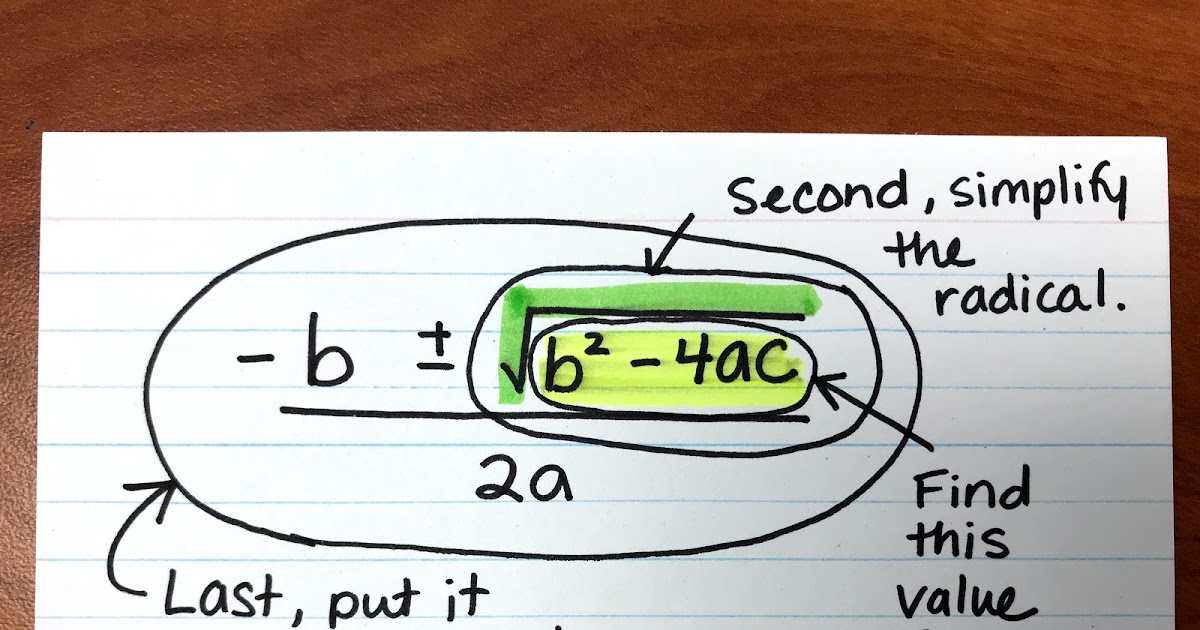 Second, simplify
the
radical.
-b ± √b² - 4ac
2a
Find
this
value
Last, put it